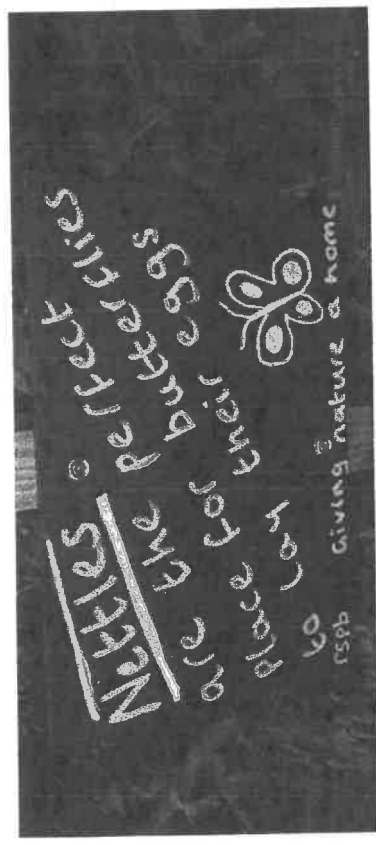 Nettles:
are the perfect
place for butterflies
to lay their eggs
rspb giving nature a home